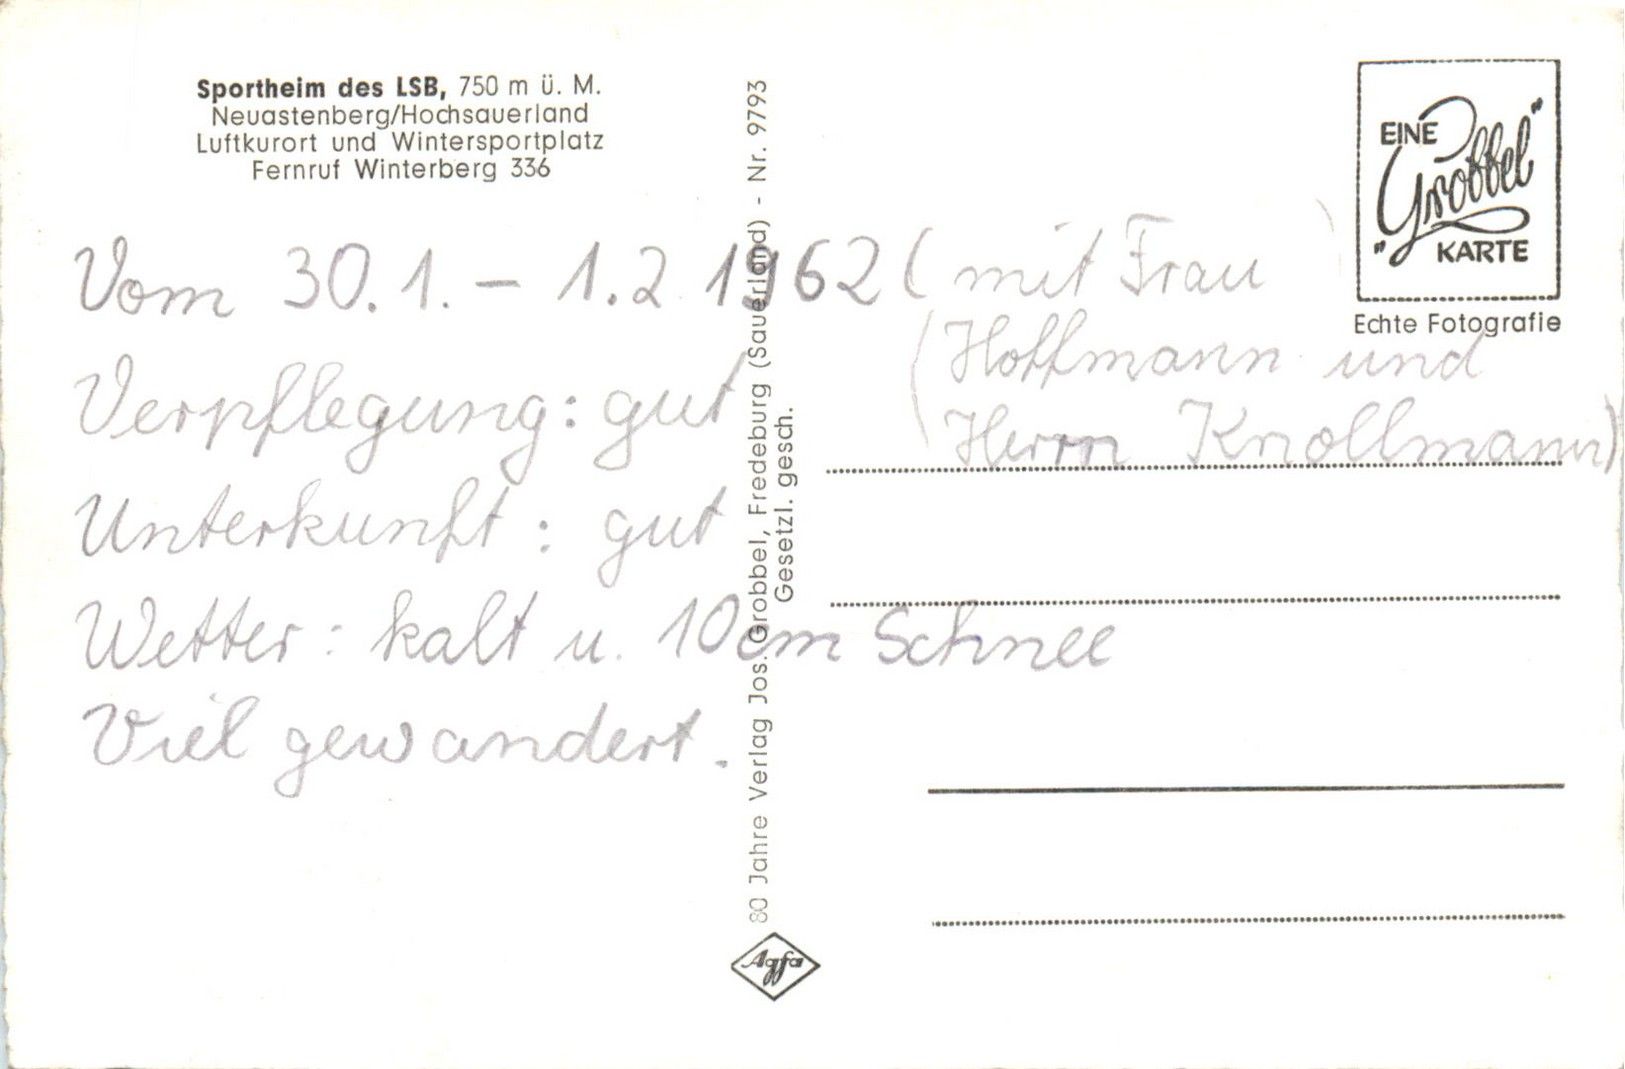 Sportheim des LSB, 750 m ü. M.
Neuastenberg/Hochsauerland
Luftkurort und Wintersportplatz
Fernruf Winterberg 336
Vom 30. 1. – 1. 2 1962 (mit Frau
Hoffmann und
Herrn Knollmann)
Verpflegung: gut
Unterkunft: gut
Wetter: kalt u. 10 cm Schnee
Viel gewandert.
80 Jahre Verlag Jos. Grobbel, Fredeburg (Sauerland) - Nr. 9793
Gesetzl. gesch.
Agfa
EINE
„Grobbel"
KARTE
Echte Fotografie